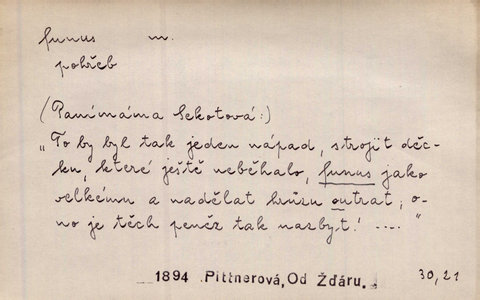 funus m.
pohřeb
(Panímáma Sekotová:)
„To by byl tak jeden nápad, strojit děc-
ku, které ještě neběhalo, funus jako
velkému a nadělat hrůzu outrat, o-
no je těch peněz tak nazbyt! .... "
1894 Pittnerová, Od Žďáru.
30,21